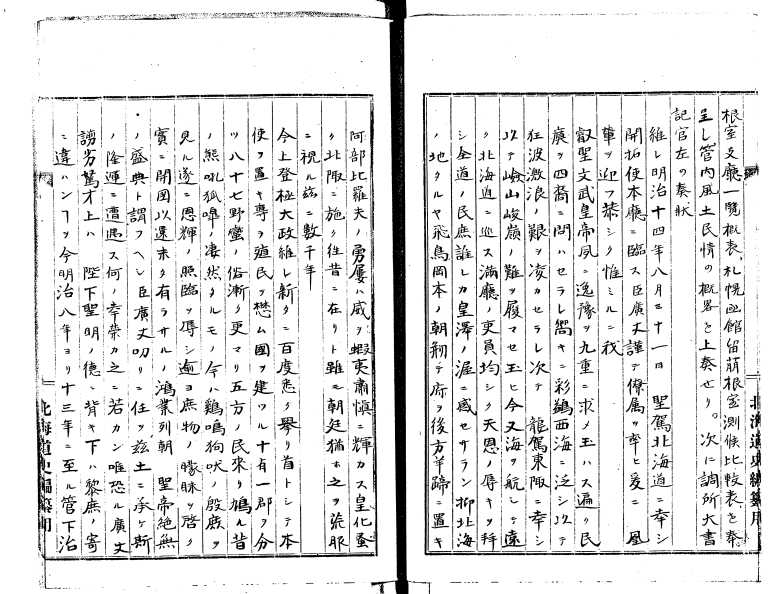 根室支廳一覽概表、札幌函館留萌根室測候比較表ヲ奉
呈し管内風土民情の概畧を上奏せり。次に調所大書
記官左の奏狀
維レ明治十四年八月三十一日　聖駕北海道ニ幸シ
開拓使本廳ニ臨ス臣廣丈謹テ僚屬ヲ率ヒ爰ニ　鳳
輦ヲ迎フ恭シク惟ミルニ我
叡聖文武皇帝夙ニ逸豫ヲ九重ニ求メ玉ハス遍ク民
瘼ヲ四裔ニ問ハセラレ嚮キニ彩鷁西海ニ泛シ以テ
狂波激浪ノ艱ヲ凌カセラレ次テ　龍駕東陬ニ幸シ
以テ嶮山峻嶺ノ難ヲ履マセ玉ヒ今又海ヲ航シテ遠
ク北海道ニ巡ス滿廳ノ吏員均シク天恩ノ辱キヲ拜
シ全道ノ民庶誰レカ皇澤ノ渥ニ感セサラン抑北海
ノ地タルヤ飛鳥岡本ノ朝剏テ府ヲ後方羊蹄ニ置キ
阿部比羅夫ノ勇屢ハ威ヲ蝦夷肅愼ニ輝カス皇化蚤
ク北陬ニ施ク往昔ニ在リト雖モ朝廷猶ホ之ヲ荒服
ニ視ル玆ニ數千年
今上登極大政維レ新タニ百度悉ク擧リ首トシテ本
使ヲ置キ專ヲ殖民ヲ懋ム國ヲ建ツル十有一郡ヲ分
ツ八十七野蠻ノ俗漸ク更マリ五方ノ民來リ鳩ル昔
ノ熊吼狐嘷ノ凄然タルモノ今ハ鷄鳴狗吠ノ殷盛ヲ
見ル遂ニ恩輝ノ照臨ヲ辱シ逾ヨ庶物ノ曚眛ヲ啓ク
實ニ開國以還未タ有ラサルノ鴻業列朝　聖帝絶無
ノ盛典ト謂フヘシ臣廣丈叨リニ任ヲ玆土ニ承ケ斯
ノ隆運ニ遭遇ス何ノ幸榮カ之ニ若カン唯恐ル廣丈
謭劣駑才上ハ　陛下聖明ノ德ニ背キ下ハ黎庶ノ寄
ニ違ハンコヲ今明治八年ヨリ十三年ニ至ル管下治
北海道史編纂用